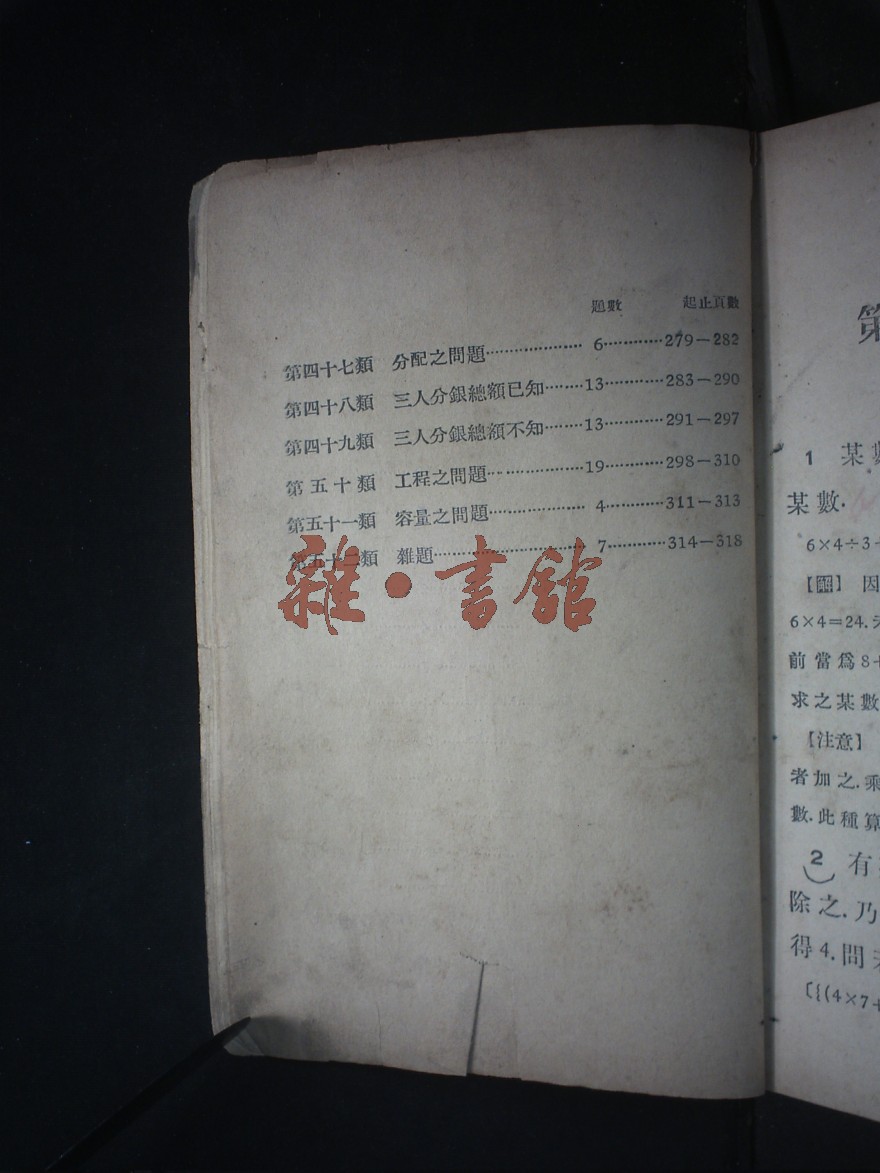 題數 起止頁數
第四十七類 分配之問題………………… 6…………279—282
第四十八類 三人分銀總額已知………13…………283—290
第四十九類 三人分銀總額不知………13…………291—297
第五十類 工程之問題…………………19…………298—310
第五十一類 容量之問題………………… 4…………311—313
第五十二類 雜題………………………… 7…………314—318
雜·書館
第
1 某數
某數.
6×4÷3
【解】 因
6×4=24.
前當爲8
求之某數
【注意】
者加之.乘
數.此種算
2 有
除之.乃
得4.問
〔{(4×7+